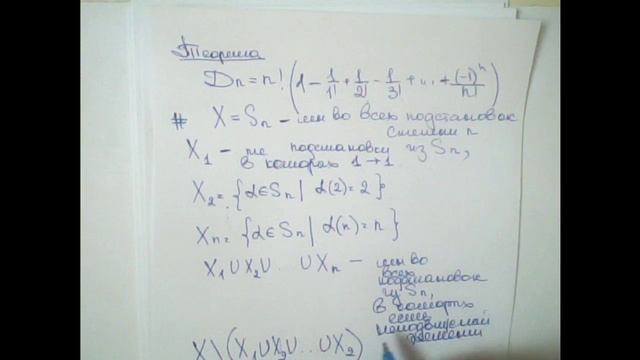 Теорема
Dn = n! (1 - 1/1! + 1/2! - 1/3! + ... + (-1)^n/n!)
# X = Sn - мн во всех подстановок
степени n
X1 - те подстановки из Sn,
в которых 1→1
X2 = {α∈Sn | α(2)=2}
Xn = {α∈Sn | α(n)=n}
X1∪X2∪ .. ∪Xn - мн во
всех
подстановок
из Sn,
в которых
есть
неподвижный
элемент
X\(X1∪X2∪...∪X2)